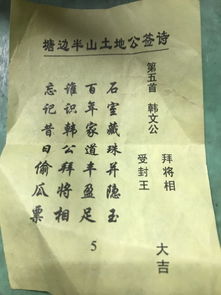 塘边半山土地公签诗
第五首 韩文公
拜将相
受封王
石室藏珠并隐玉
百年家道丰盈足
谁识韩公拜将相
忘记昔日偷瓜票
5
大吉